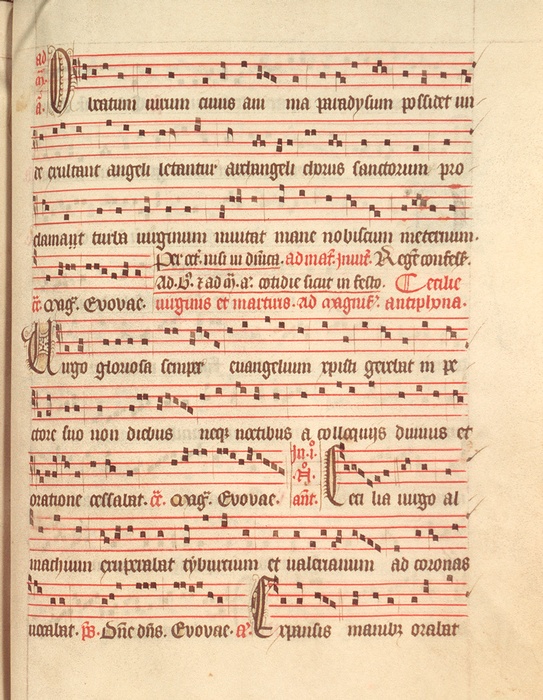 ad
m̄.
a.
O beatum uirum cuius ani ma paradysum possidet un
de exultant angeli letantur archangeli chorus sanctorum pro
clamant turba uirginum inuitat mane nobiscum meternum.
Per oct. nisi in dn̄ica. ad mat. Inuit. Regē confess.
Ad. B. ⁊ ad m̄. a. cotidie sicut in festo. Cecilie
c̄e. Mag. Evovae. uirginis et martiris. ad magnif. antiphona.
Uirgo gloriosa semper euangelium xpisti gerebat in pe
ctore suo non diebus neqꝫ noctibus a colloquijs diuinis et
oratione cessabat. c̄e. Mag. Evovae. In. i. N. ant. Ceci lia uirgo al
machium exuperabat tyburcium et ualerianum ad coronas
uocabat. ps. Dn̄e dn̄s. Evovae. a. Expansis manibꝫ orabat